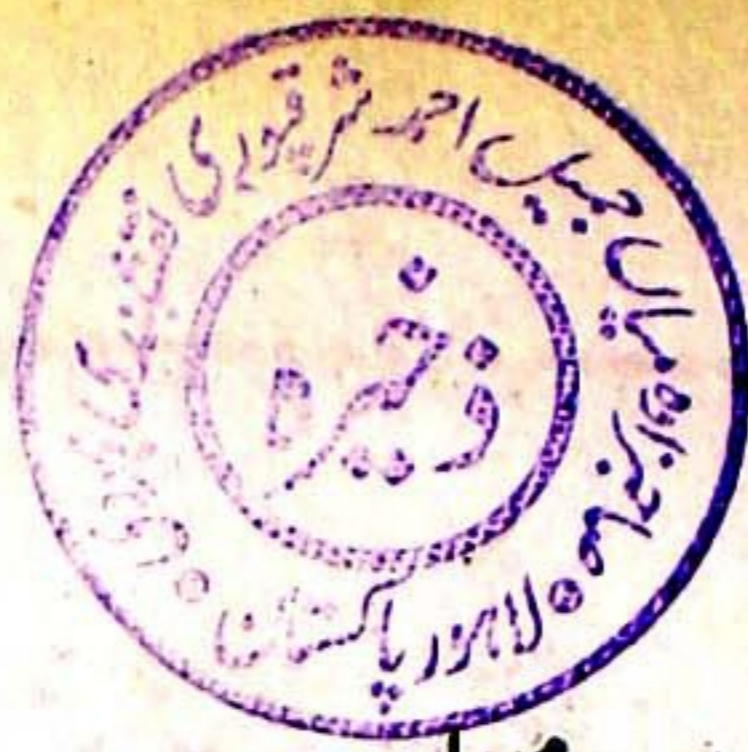 صاحبزادہ میاں جمیل احمد شرقپوری نقشبندی مجددی
ذخیرہ
لاہور پاکستان